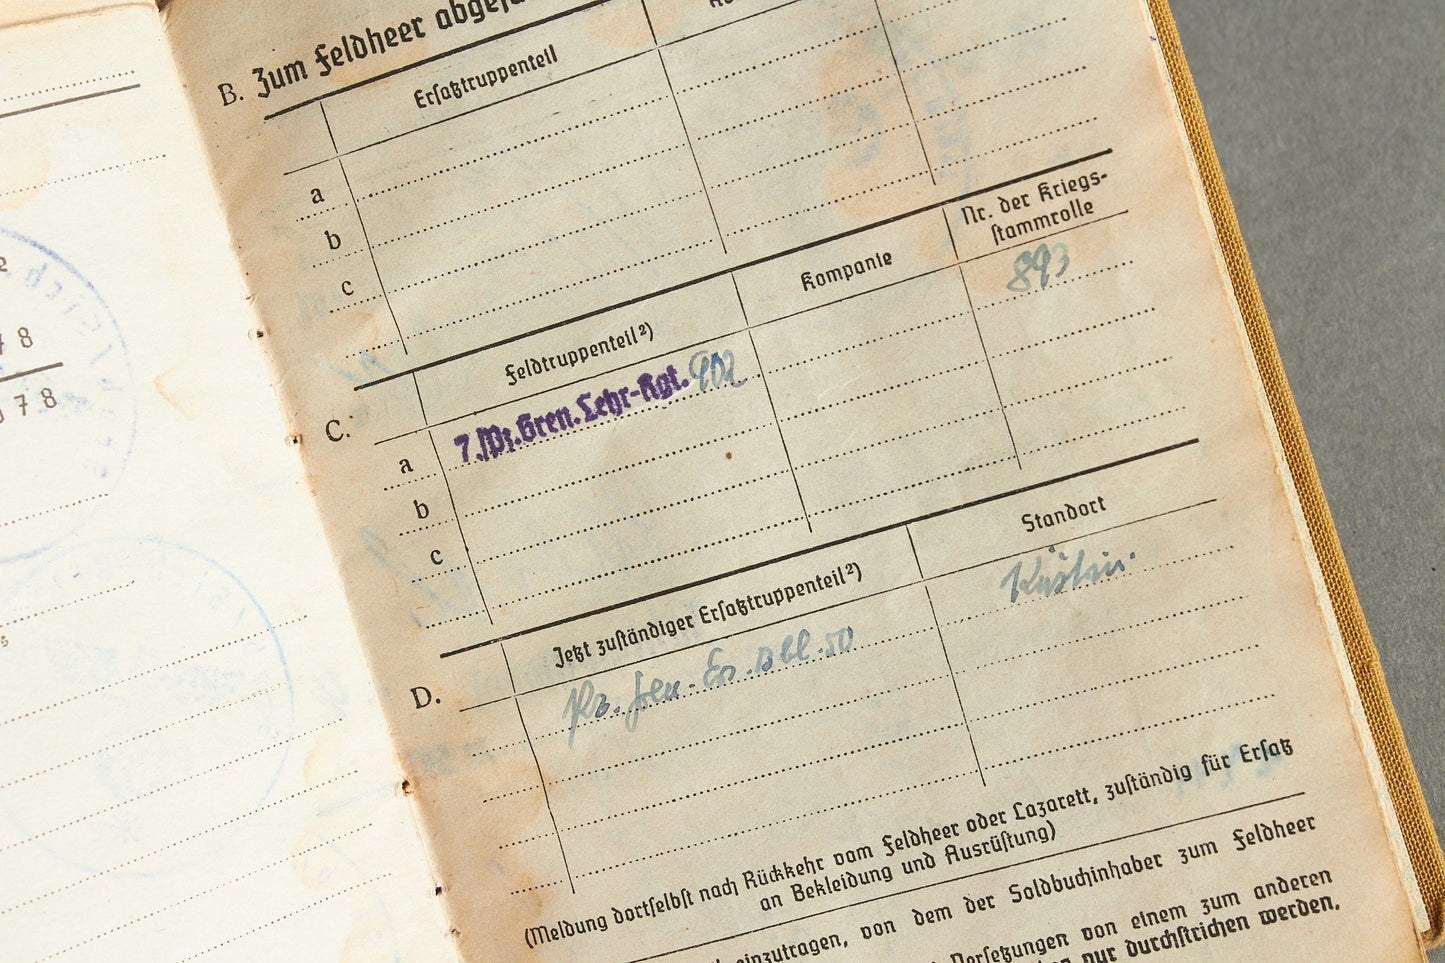 B. Zum Feldheer
Ersatztruppenteil
a
b
c
Nr. der Kriegs-
stammrolle
Kompanie
893
C.
Feldtruppenteil²)
a
7./Pz.Gren.Lehr-Rgt. 902
b
c
Standort
D.
Jetzt zuständiger Ersatztruppenteil²)
Küstrin
Pz. Gren.-Ers. Abtl. 50
(Meldung dortselbst nach Rückkehr vom Feldheer oder Lazarett, zuständig für Ersatz
an Bekleidung und Ausrüstung)
einzutragen, von dem der Soldbuchinhaber zum Feldheer
Versetzungen von einem zum anderen
nur durchstrichen werden.
8
78